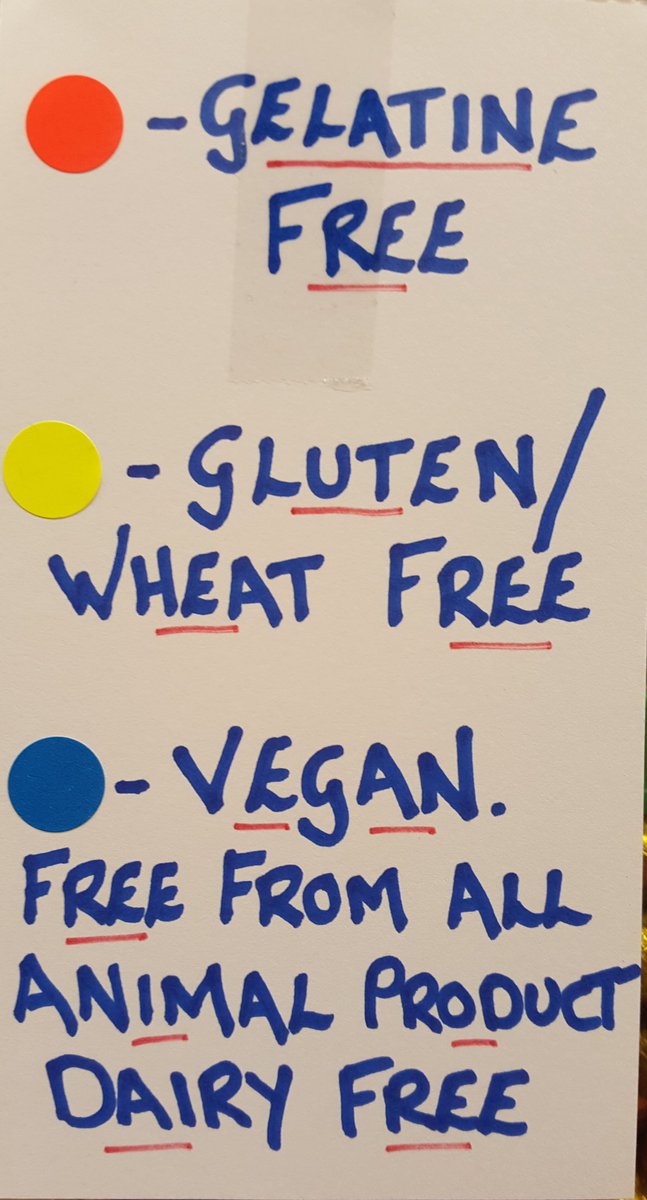 - GELATINE
FREE
- GLUTEN/
WHEAT FREE
- VEGAN.
FREE FROM ALL
ANIMAL PRODUCT
DAIRY FREE